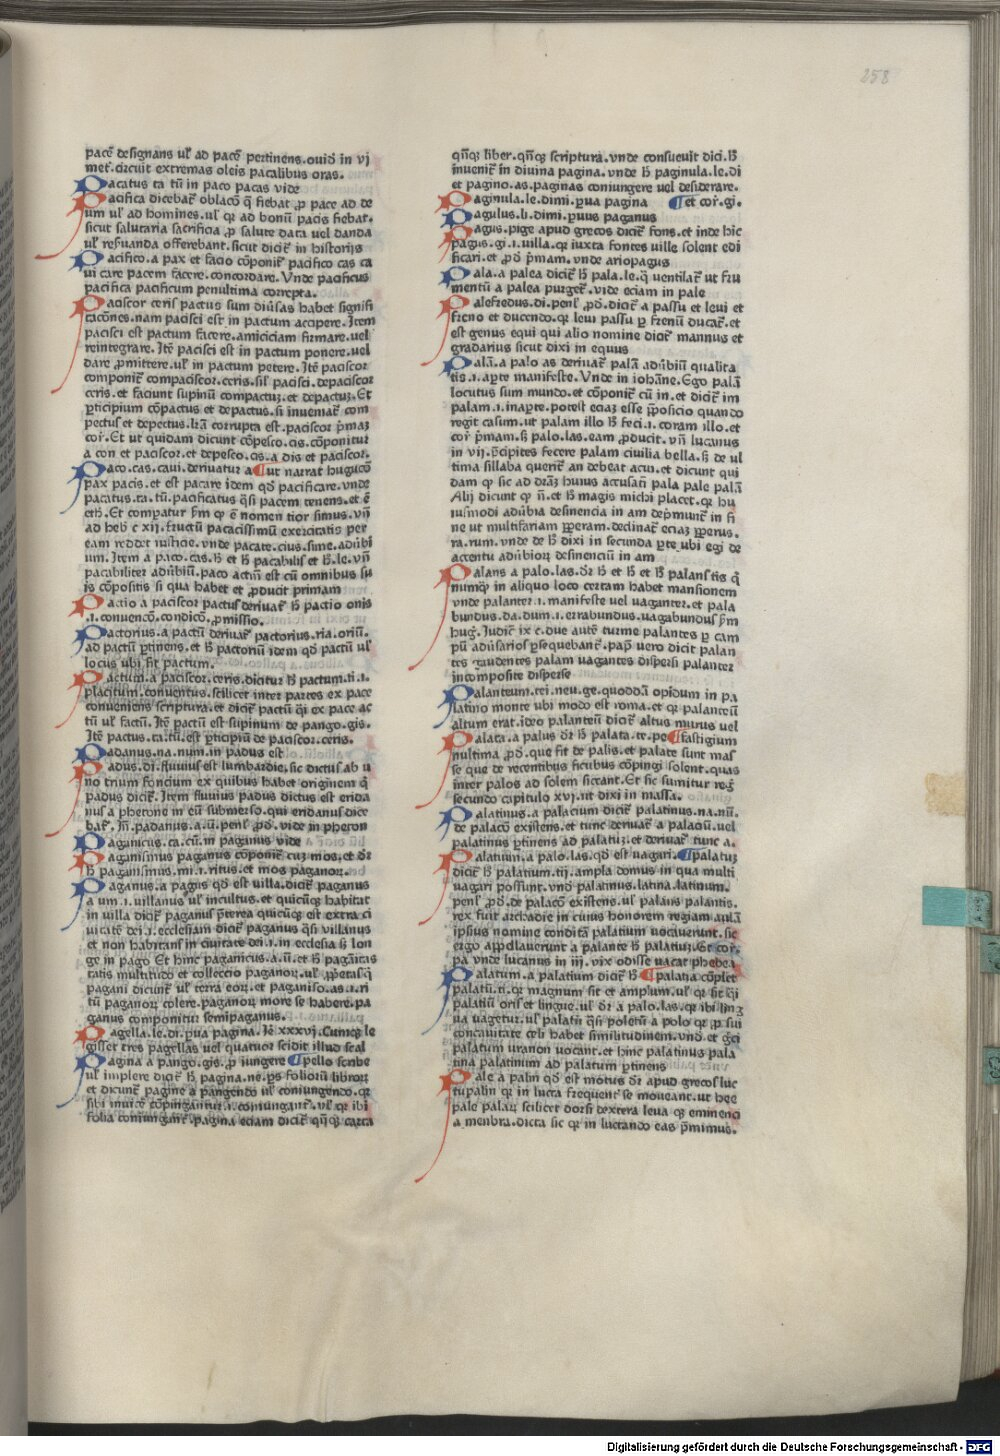 258
pacē designans ul' ad pacē pertinens. ouid in vj
met. circuit extremas oleis pacalibus oras.
Pacatus ta tū in paco pacas vide
Pacifica dicebat᷑ oblacō q̄ fiebat ꝓ pace ad de
um ul' ad homines. ul' qꝛ ad bonū pacis fiebat.
sicut salutaria sacrificia ꝓ salute data vel danda
ul' reseruanda offerebant. sicut dicit᷑ in historijs
Pacifico. a pax et facio cōponit᷑ pacifico cas ca
ui care pacem facere. concordare. Vnde pacificus
pacifica pacificum penultima correpta.
Paciscor ceris pactus sum diu'sas habet signifi
tacōnes. nam pacisci est in pactum accipere. Item
pacisci est pactum facere. amiciciam firmare. vel
reintegrare. Itē pacisci est in pactum ponere. vel
dare ꝓmittere. ul' in pactum petere. Itē paciscor
componit᷑ compaciscor. ceris. sil' pacisci. depaciscor
ceris. et faciunt supinū compactuꝫ. et depactuꝫ. Et
ꝑticipium cōpactus et depactus. si inueniat᷑ com
pectus et depectus. lr̄a corrupta est. paciscor pⁱmaꝫ
cor᷑. Et ut quidam dicunt cōpesco. cis. cōponitur
a con et paciscor. et depesco. cis. a dis et paciscor.
Paco. cas. caui. deriuatur a ¶ ut narrat huguco᷑
pax pacis. et est pacare idem qd̄ pacificare. vnde
pacatus. ta. tū. pacificatus q̄si pacem tenens. et ē
eth᷑. Et compatur pⁱm qꝛ ē nomen tior simus. vn̄
ad heb᷑ c xij. fructū pacatissimū exercitatis per
eam reddet iusticie. vnde pacate. cius. sime. adu'bi
um. Item a paco. cas. h᷑ et h᷑ pacabilis et h᷑. le. vn̄
pacabiliter adu'biū. paco actiuū est cū omnibus su
is cōpositis si qua habet et ꝓducit primam
Pactio a paciscor pactus deriuat᷑ h᷑ pactio onis
.i. conuencō. condicō. ꝓmissio.
Pactorius. a pactū deriuat᷑ pactorius. ria. oriū.
ad pactū ꝑtinens. et h᷑ pactoriū idem qd̄ pactū ul'
locus ubi fit pactum.
Pactum. a paciscor. ceris. dicitur h᷑ pactum. ti. i.
placitum. conuentus. scilicet inter partes ex pace
conueniens scriptura. et dicit᷑ pactū q̄si ex pace ac
tū ul' factū. Itē pactū est supinum de pango. gis.
Itē pactus. ta. tū. est ꝑticipiū de paciscor. ceris.
Padanus. na. num. in padus est
Padus. di. fluuius est lumbardie. sic dictus ab u
no trium foncium ex quibus habet originem q̄
padus dicit᷑. Item fluuius padus dictus est erida
nus a phetone in eū submerso. qui eridanus dice
bat᷑. Iñ. padanus. a. ū. penl' ꝓd᷑. vide in pheton
Paganicus. ca. cū. in paganus vide
Paganismus paganus cōponit᷑ cuꝫ mos. et d᷑r
h᷑ paganismus. mi. i. ritus. et mos paganoꝝ.
Paganus. a pagus qd̄ est villa. dicit᷑ paganus
a um. i. villanus ul' incultus. et quicūqꝫ habitat
in villa dicit᷑ paganus ꝑterea quicūqꝫ est extra ci
uitatē dei. i. ecclesiam dicit᷑ paganus q̄si villanus
et non habitans in ciuitate dei. i. in ecclesia sꝫ lon
ge in pago Et hinc paganicus. a. ū. et h᷑ paganitas
tatis multitudo et colleccio paganoꝝ. ul' ꝓprietas q̄
pagani dicunt᷑ ul' terra eoꝝ. et paganiso. as. i. ri
tū paganoꝝ colere. paganoꝝ more se habere. pa
ganus componitur semipaganus.
Pagella. le. di. ꝑua pagina. Ie᷑ xxxvj. Cumqꝫ le
gisset tres pagellas uel quatuor scidit illud scal
Pagina a pango. gis. ꝓ iungere ¶ pello scribe
ul' implere dicit᷑ h᷑ pagina. ne. ps folioꝝ libroꝝ
et dicunt᷑ pagine a pangendo ul' coniungendo. qꝛ
sibi inuicē cōpinguntur. i. coniungant᷑. ul' qꝛ ibi
folia coniungant᷑. pagina eciam dicit᷑ q̄nqꝫ carta
qn̄qꝫ liber. qn̄qꝫ scriptura. vnde consueuit dici. h᷑
inuenit᷑ in diuina pagina. vnde h᷑ paginula. le. di
et pagino. as. paginas coniungere uel desiderare.
Paginula. le. dimi. ꝑua pagina ¶ et cor᷑. gi.
Pagulus. li. dimi. ꝑuus paganus
Pagus. pige apud grecos dicit᷑ fons. et inde hic
pagus. gi. i. uilla. qꝛ iuxta fontes uille solent edi
ficari. et ꝓd᷑ pⁱmam. vnde ariopagus
Pala. a palea dicit᷑ h᷑ pala. le. q̄ ventilat᷑ ut fru
mentū a palea purget᷑. vide eciam in pale
Palefredus. di. penl' ꝓd᷑. dicit᷑ a passu et leui et
freno et ducendo. qꝛ leui passu ꝑ frenū ducat᷑. et
est genus equi qui alio nomine dicit᷑ mannus et
gradarius sicut dixi in equus
Palā. a palo as deriuat᷑ palā adu'biū qualita
tis. i. aꝑte manifeste. Vnde in iohāne. Ego palā
locutus sum mundo. et cōponit᷑ cū in. et dicit᷑ im
palam. i. inaꝑte. potest eciaꝫ esse p̄posicio quando
regit casum. ut palam illo h᷑ feci. i. coram illo. et
cor᷑ pⁱmam. sꝫ palo. las. eam ꝓducit. vn̄ lucanus
in vij. pⁱncipites fecere palam ciuilia bella. sꝫ de ul
tima sillaba querit᷑ an debeat acui. et dicunt qui
dam qꝛ sic ad dr̄am huius accusatiui pala pale palā
Alij dicunt qꝛ n̄. et h᷑ magis michi placet. qꝛ hu
iusmodi adu'bia desinencia in am dep̄munt᷑ in fi
ne ut multifariam ꝑperam. declinat᷑ eciaꝫ ꝑperus.
ra. rum. vnde de h᷑ dixi in secunda ꝑte ubi egi de
accentu adu'bioꝝ desinenciū in am
Palans a palo. las. d᷑r h᷑ et h᷑ et h᷑ palans tis q̄
numqꝫ in aliquo loco certam habet mansionem
vnde palanter. i. manifeste uel vaganter. et pala
bundus. da. dum. i. errabundus. uagabundus pⁱm
hug᷑. Iudic᷑ ix c. due autē turme palantes ꝑ cam
pū adu'sarios ꝑsequebant᷑. pap᷑ uero dicit palan
tes gaudentes palam vagantes dispersi palanter
incomposite disperse
Palanteum. tei. neu. ge. quoddā opidum in pa
latino monte ubi modo est roma. et qꝛ palanteū
altum erat. ideo palanteū dicit᷑ altus murus uel
Palata. a palus d᷑r h᷑ palata. te. pe ¶ fastigium
nultima ꝓd᷑. que fit de palis. et palate sunt mas
se que de recentibus ficubus cōpingi solent. quas
inter palos ad solem siccant. Et sic sumitur reg᷑
secundo capitulo xvj. ut dixi in massa.
Palatinus. a palacium dicit᷑ palatinus. na. nū.
de palacō existens. et tunc deriuat᷑ a palaciū. uel
palatinus ꝑtinens ad palatiū. et deriuat᷑ tunc a.
Palatium. a palo. las. qd̄ est uagari. ¶ palatuꝫ
dicit᷑ h᷑ palatium. tij. ampla domus in qua multi
uagari possunt. vnd᷑ palatinus. latina. latinum.
penl' ꝓd᷑. de palacō existens. ul' palans palantis.
rex fuit archadie in cuius honorem regiam aulā
ipsius nomine conditā palatium uocauerunt. sic
ergo appellauerunt a palante h᷑ palatiuꝫ. Et cor᷑.
pa vnde lucanus in iij. vix odisse uacat phebea
Palatum. a palatium dicit᷑ h᷑ ¶ palatia cōplet
palatū. ti. qꝛ magnum sit et amplum. ul' qꝛ sit q̄si
palatiū oris et lingue. ul' d᷑r a palo. las. qꝛ ibi ling
ua uagetur. ul' palatū q̄si poletū a polo qꝛ ꝓ sui
concauitate celi habet similitudinem. vnd᷑ et g᷑ci
palatum uranon uocant. et hinc palatinus pala
tina palatinum ad palatum ꝑtinens
Pale a palin qd̄ est motus d᷑r apud grecos luc
tupalin qꝛ in lucta frequent᷑ se moueant. ut hee
pale palaꝝ scilicet dorsi dextera leua qꝫ eminenci
a membra. dicta sic qꝛ in luctando eas pⁱmimus.
Digitalisierung gefördert durch die Deutsche Forschungsgemeinschaft - DFG